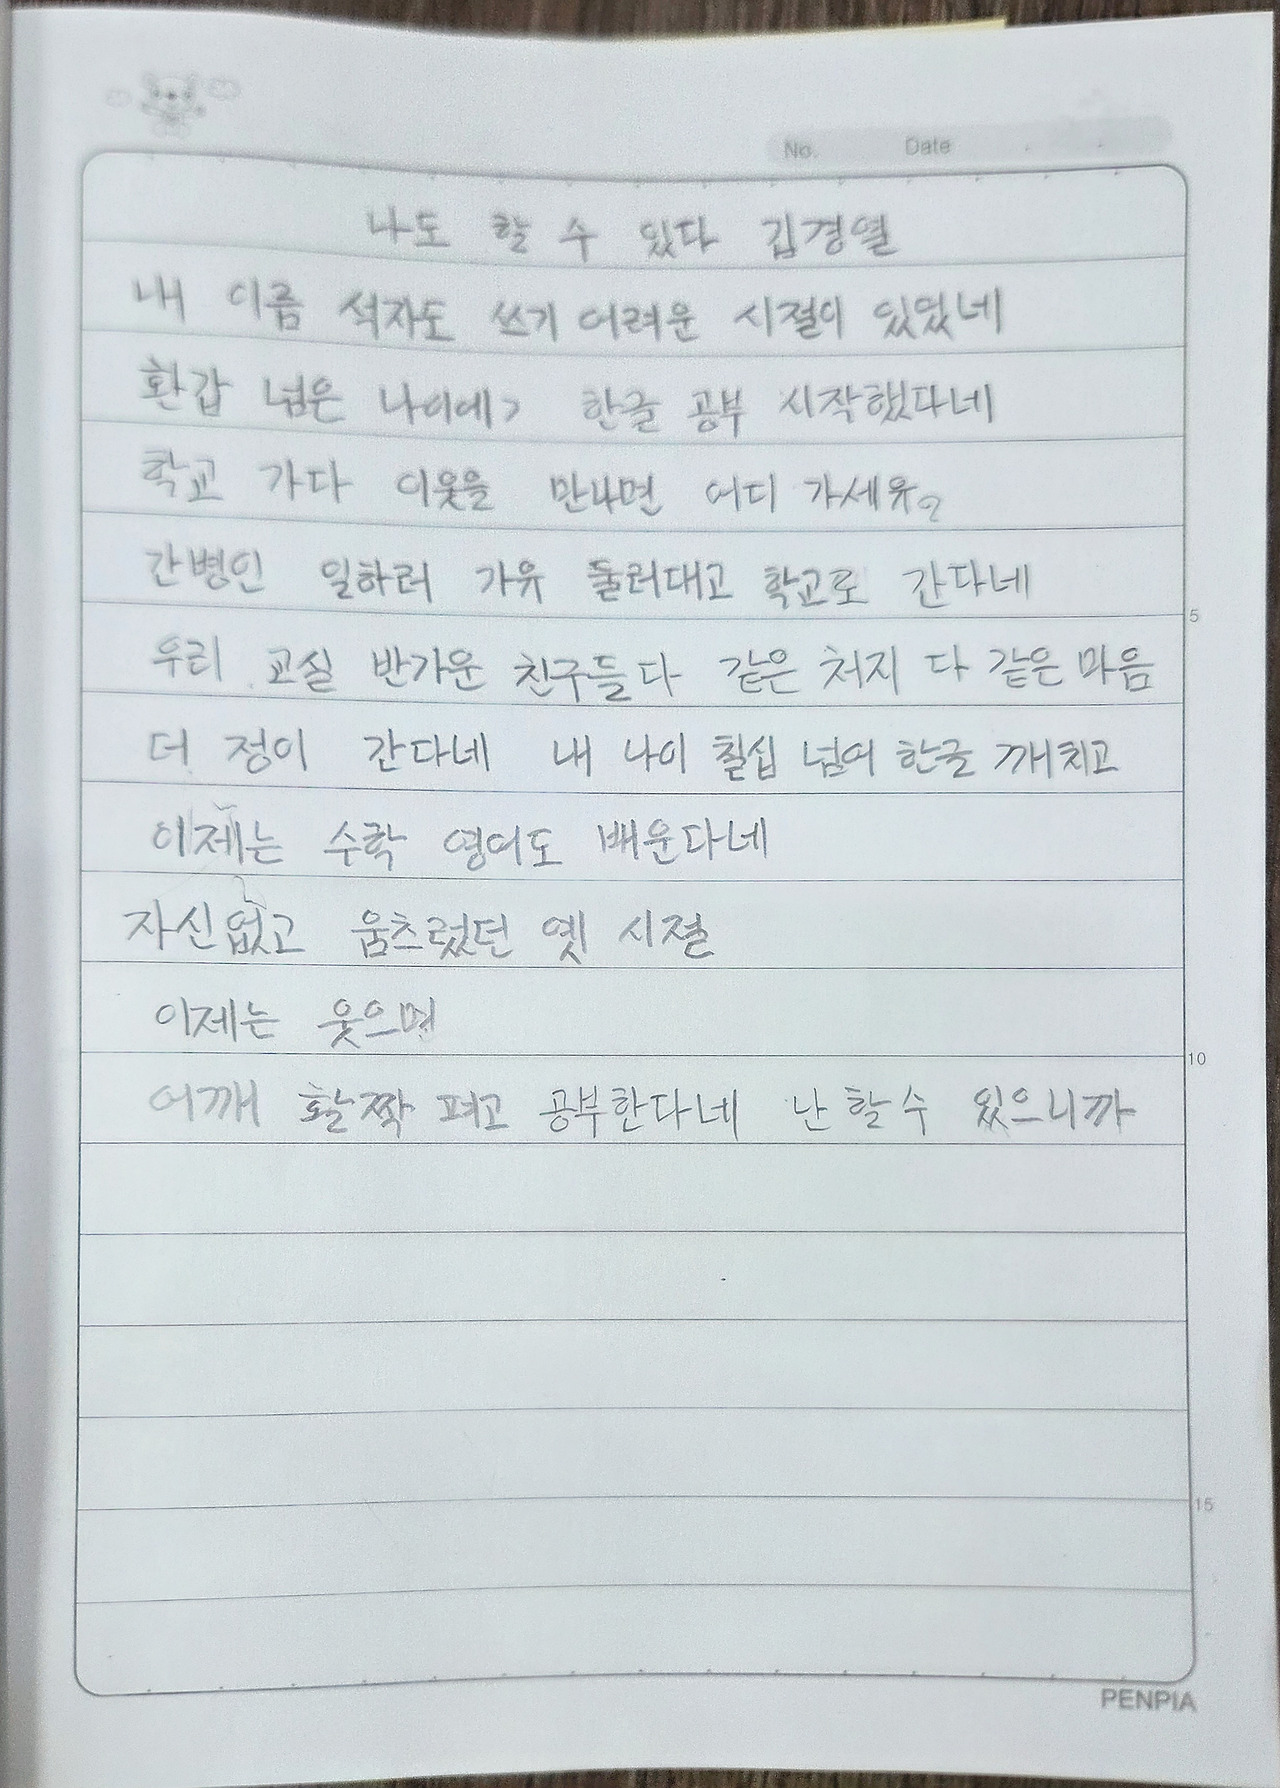 No. Date
나도 할 수 있다 김경열
내 이름 석자도 쓰기 어려운 시절이 있었네
환갑 넘은 나이에 한글 공부 시작했다네
학교 가다 이웃을 만나면 어디 가세유?
간병인 일하러 가유 둘러대고 학교로 간다네
5
우리 교실 반가운 친구들 다 같은 처지 다 같은 마음
더 정이 간다네 내 나이 칠십 넘어 한글 깨치고
이제는 수학 영어도 배운다네
자신없고 움츠렸던 옛 시절
이제는 웃으며
10
어깨 활짝 펴고 공부한다네 난 할 수 있으니까
15
PENPIA